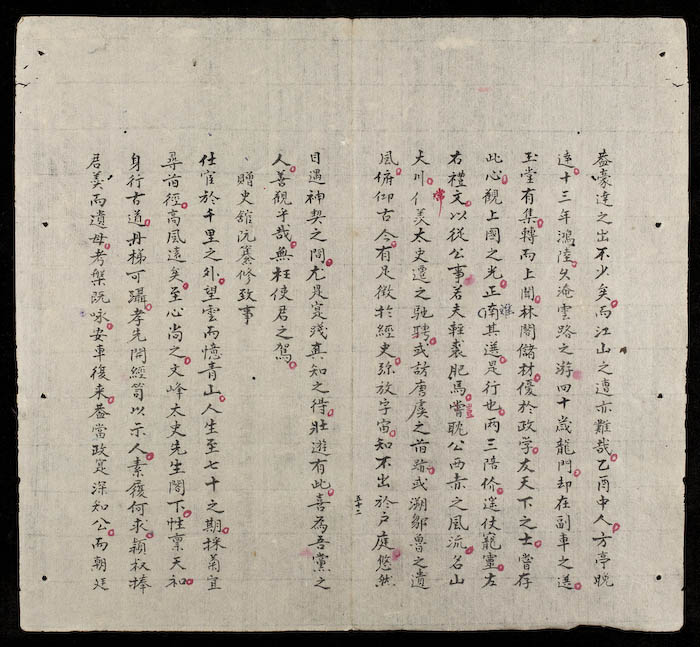 蓋豪達之出不少矣而江山之遭亦難哉乙酉中人方亭晚
遠十三年鴻陸久淹雲路之游四十歲龍門却在副車之送
玉堂有集轉而上聞林閣儲材優於政学友天下之士嘗存
此心觀上國之光正其選是行也兩三陪价遥仗寵靈左
右禮文以從公事若夫輕裘肥馬嘗耽公西赤之風流名山
大川𠆳羙太史遷之馳騁或諸唐虞之首跡或溯鄒魯之遺
風俯仰古今有足徵於經史弥放宇宙知不出於户庭悠然
五十二
目遇神契之間尤是寔淺真知之得壯遊有此喜為吾黨之
人善觀乎哉無枉使君之駕
贈史舘阮纂修致事
仕宦於千里之外望雲而憶青山人生至七十之期採菊宜
尋首徑高風遠矣至心尚之文峰太史先生閣下性稟天和
身行古道丹梯可躡孝先開經笥以示人素履何求穎叔捧
君羙而遺母考槃阮咏安車復来蓋當政寔深知公而朝廷